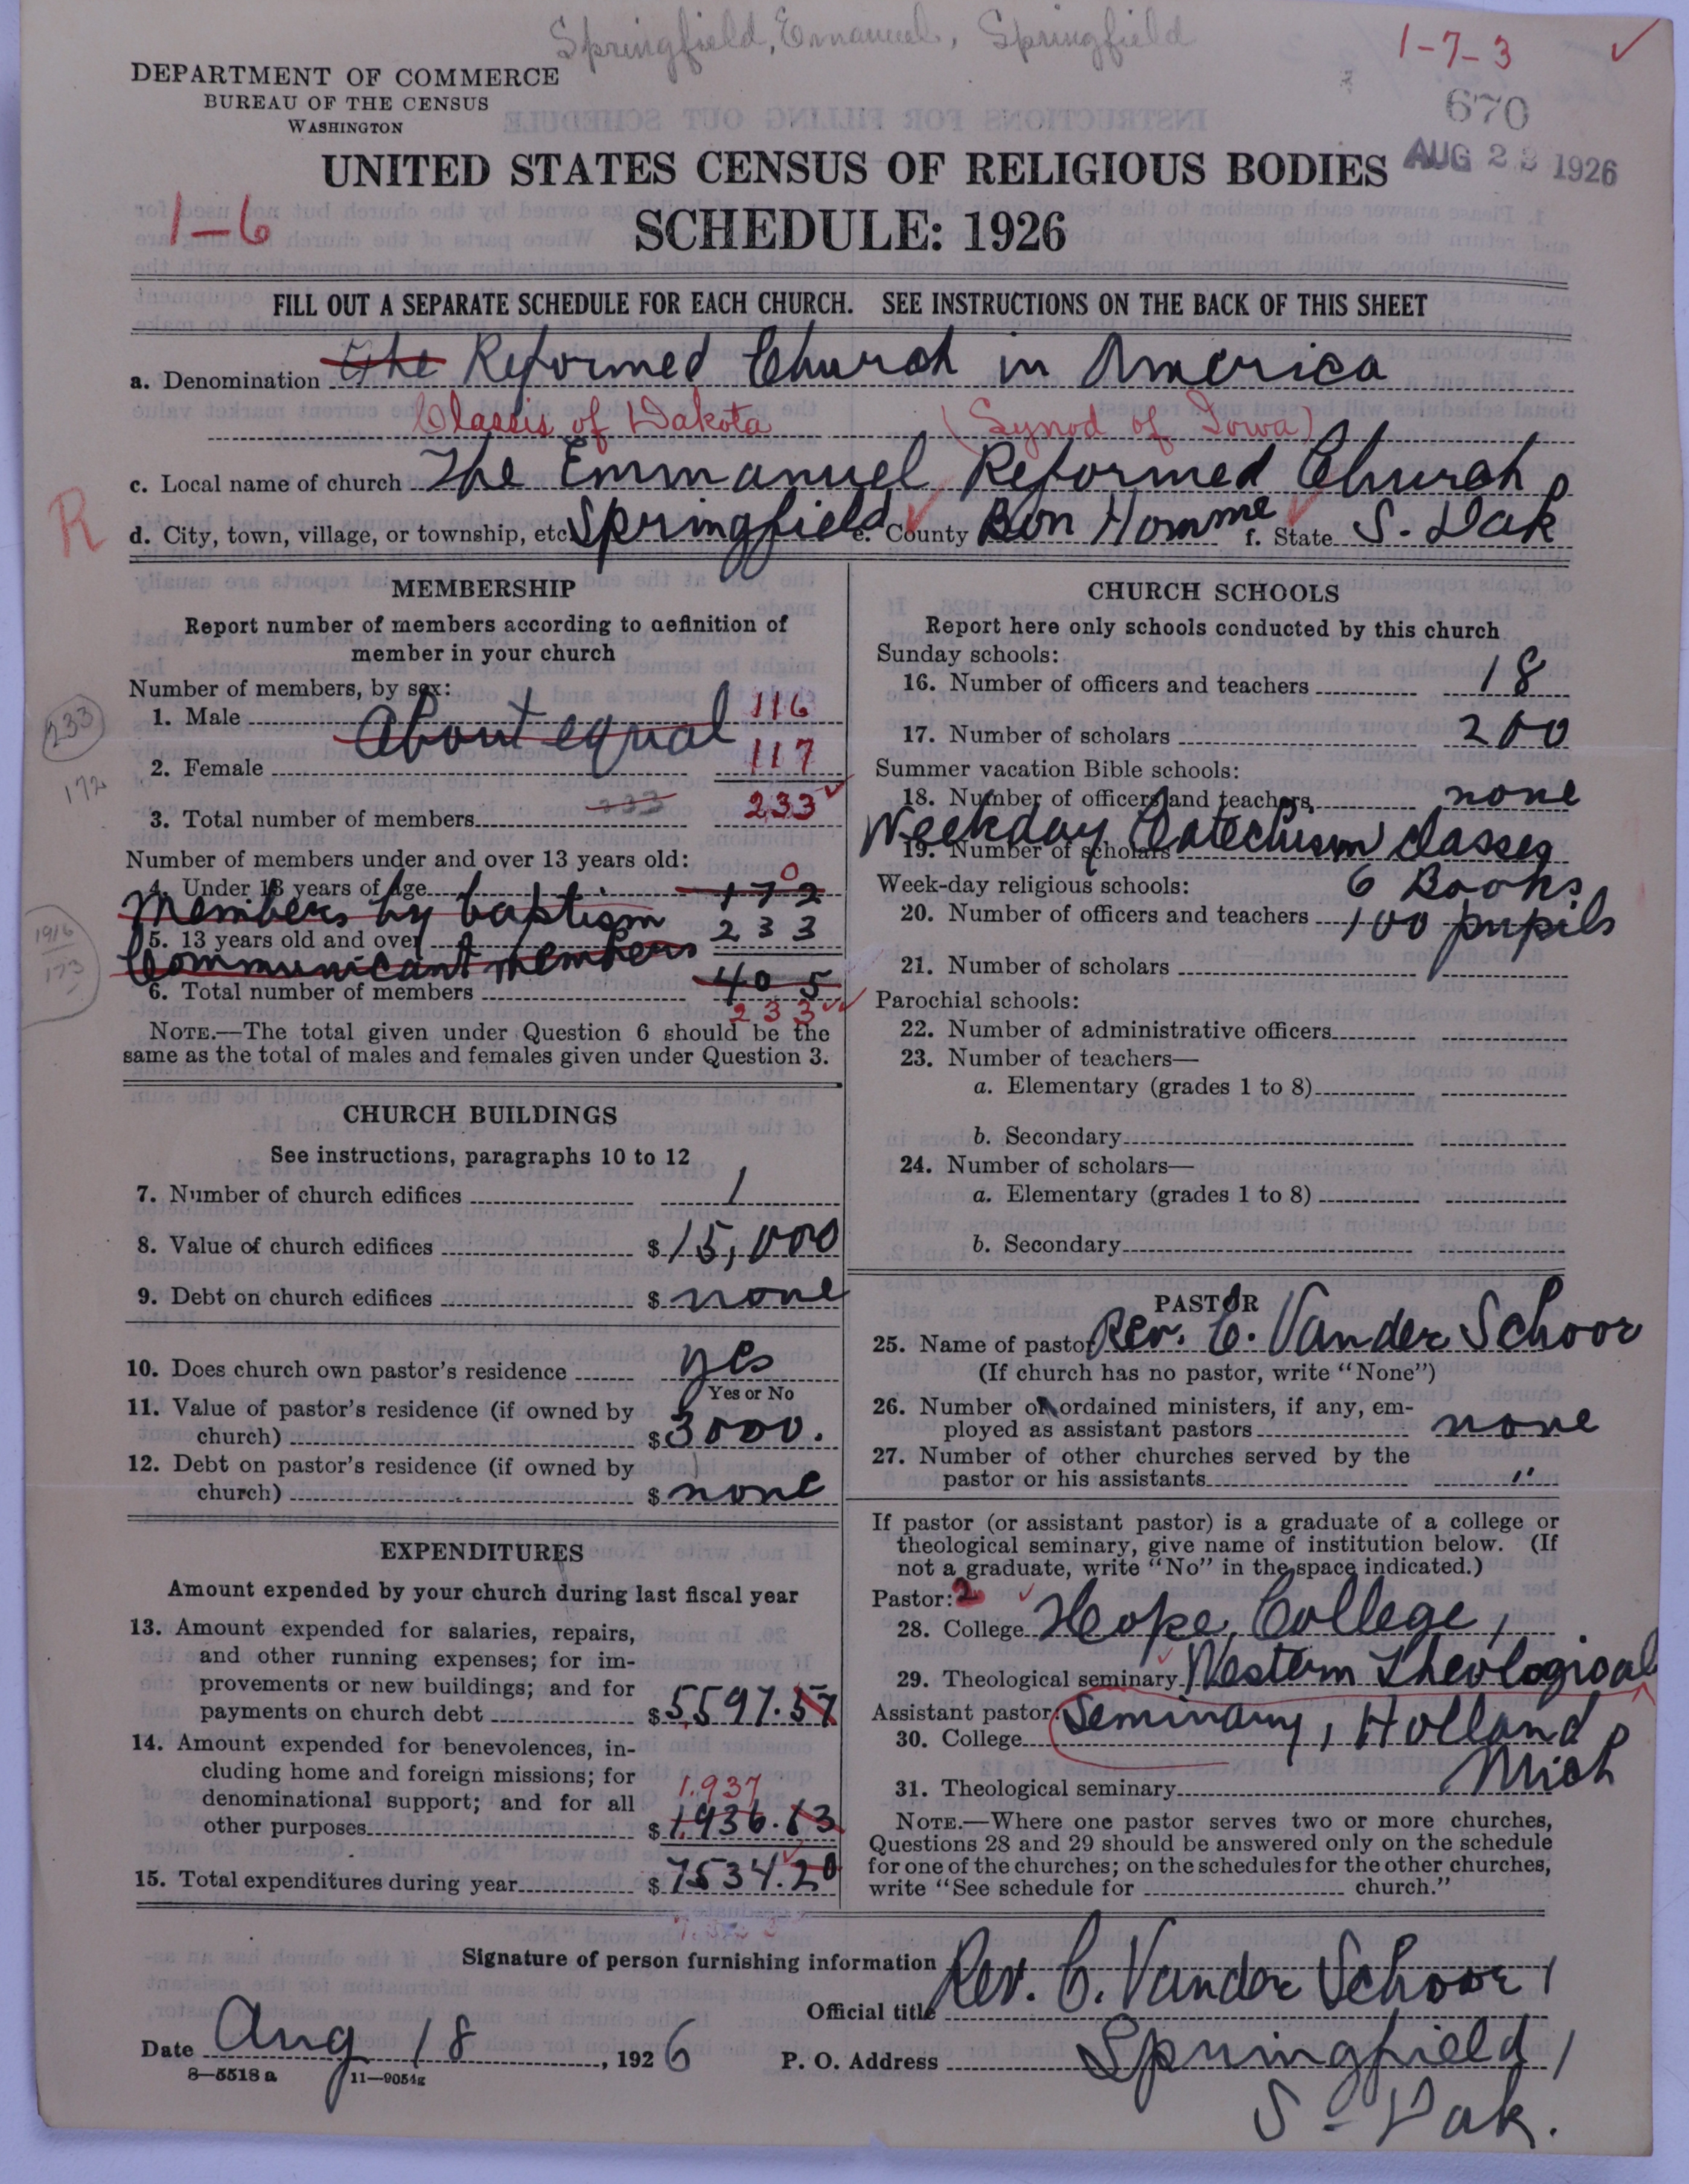 Springfield, Emanuel, Springfield
1-7-3
DEPARTMENT OF COMMERCE
BUREAU OF THE CENSUS
WASHINGTON
670
AUG 23 1926
UNITED STATES CENSUS OF RELIGIOUS BODIES
1-6
SCHEDULE: 1926
FILL OUT A SEPARATE SCHEDULE FOR EACH CHURCH. SEE INSTRUCTIONS ON THE BACK OF THIS SHEET
a. Denomination The Reformed Church in America
Classis of Dakota (Synod of Iowa)
c. Local name of church The Emmanuel Reformed Church
R
d. City, town, village, or township, etc. Springfield e. County Bon Homme f. State S. Dak
MEMBERSHIP
Report number of members according to definition of
member in your church
Number of members, by sex:
1. Male About equal 116
233
2. Female 117
172
3. Total number of members 233 233
Number of members under and over 13 years old:
0
4. Under 13 years of age 172
Members by baptism
5. 13 years old and over 233
Communicant members
1916
173
6. Total number of members 405
233
NOTE.—The total given under Question 6 should be the
same as the total of males and females given under Question 3.
CHURCH BUILDINGS
See instructions, paragraphs 10 to 12
7. Number of church edifices 1
8. Value of church edifices $ 15,000
9. Debt on church edifices $ none
10. Does church own pastor's residence yes
Yes or No
11. Value of pastor's residence (if owned by
church) $ 3000.
12. Debt on pastor's residence (if owned by
church) $ none
EXPENDITURES
Amount expended by your church during last fiscal year
13. Amount expended for salaries, repairs,
and other running expenses; for im-
provements or new buildings; and for
payments on church debt $ 5597.57
14. Amount expended for benevolences, in-
cluding home and foreign missions; for
denominational support; and for all 1,937
other purposes $ 1936.63
15. Total expenditures during year $ 7534.20
CHURCH SCHOOLS
Report here only schools conducted by this church
Sunday schools:
16. Number of officers and teachers 18
17. Number of scholars 200
Summer vacation Bible schools:
18. Number of officers and teachers none
Weekday Catechism Classes
19. Number of scholars
Week-day religious schools: 6 Books
20. Number of officers and teachers 100 pupils
21. Number of scholars
Parochial schools:
22. Number of administrative officers
23. Number of teachers—
a. Elementary (grades 1 to 8)
b. Secondary
24. Number of scholars—
a. Elementary (grades 1 to 8)
b. Secondary
PASTOR
25. Name of pastor Rev. C. Vander Schoor
(If church has no pastor, write "None")
26. Number of ordained ministers, if any, em-
ployed as assistant pastors none
27. Number of other churches served by the
pastor or his assistants "
If pastor (or assistant pastor) is a graduate of a college or
theological seminary, give name of institution below. (If
not a graduate, write "No" in the space indicated.)
Pastor: 2
28. College Hope College,
29. Theological seminary Western Theological
Assistant pastor: Seminary, Holland
30. College
Mich
31. Theological seminary
NOTE.—Where one pastor serves two or more churches,
Questions 28 and 29 should be answered only on the schedule
for one of the churches; on the schedules for the other churches,
write "See schedule for church."
Signature of person furnishing information Rev. C. Vander Schoor,
Official title
Date Aug 18, 1926 P. O. Address Springfield,
8—5518a 11—9054g
S. Dak.